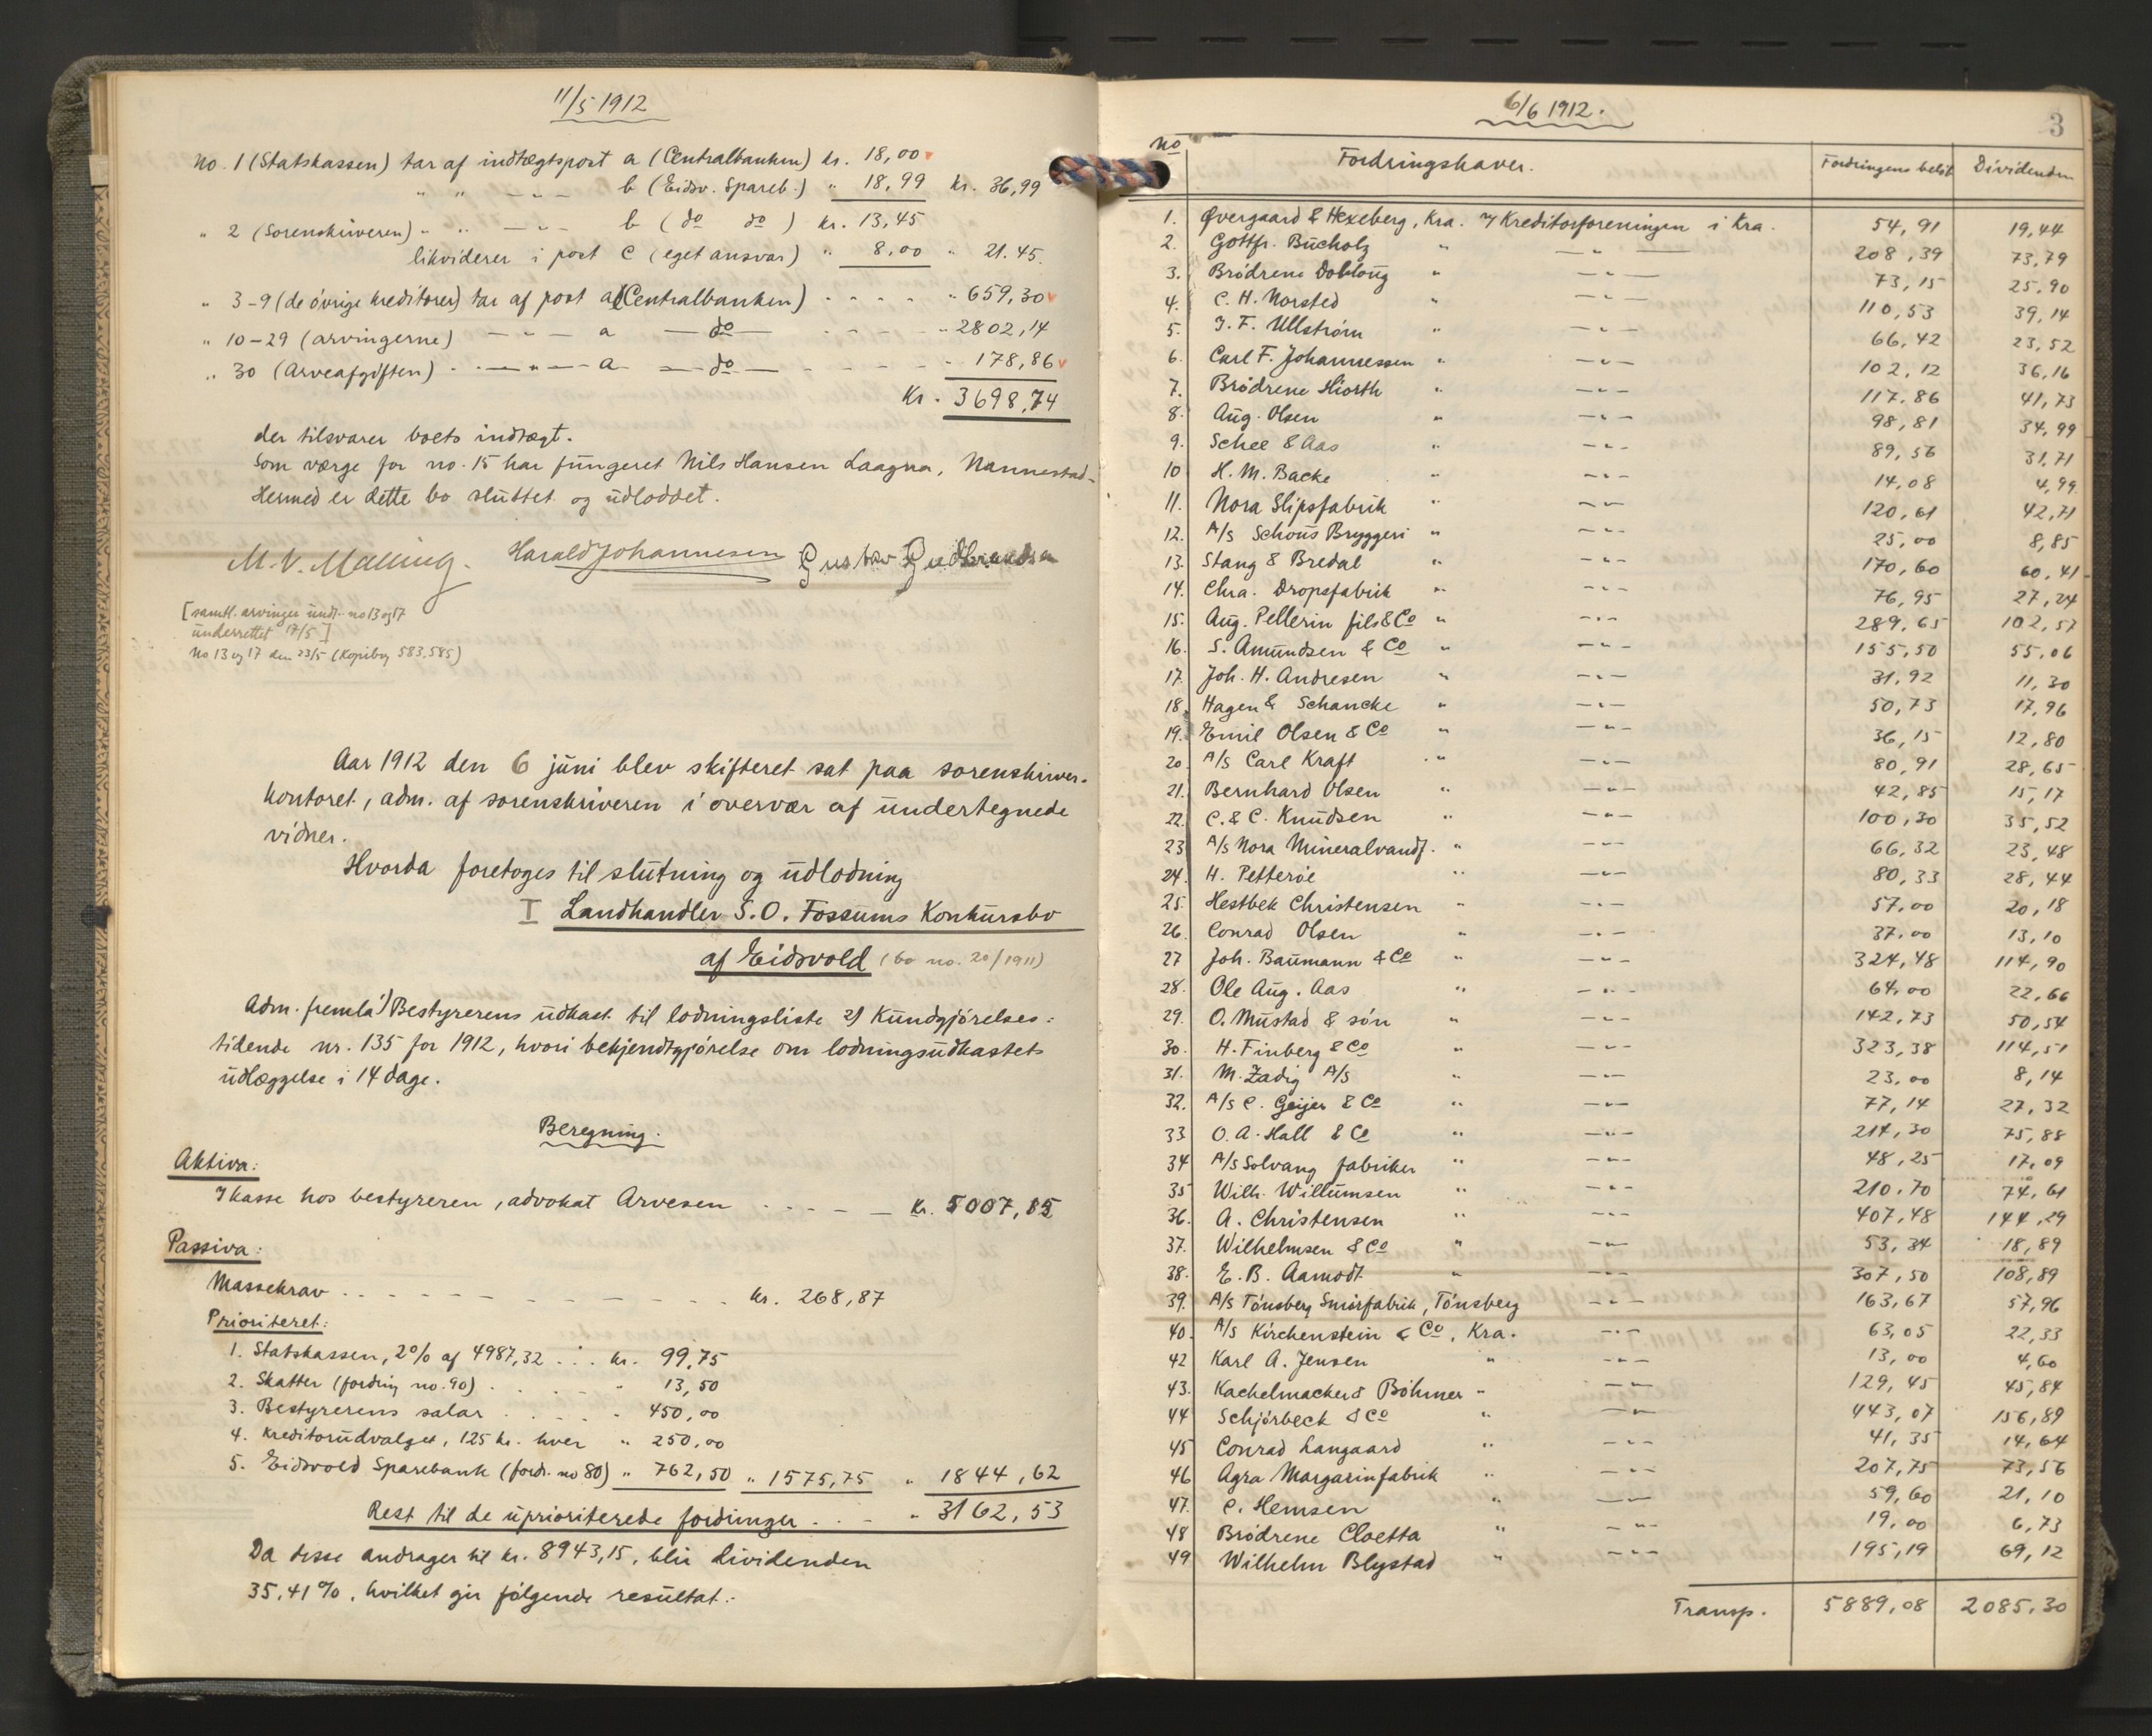 11/5 1912
No. 1 (Statskassen) tar af indtægtspost a (Centralbanken) kr. 18,00
" " — " — b (Eidsv. Spareb.) " 18,99 kr. 36,99
" 2 (Sorenskriveren) " " — " — b (do do) kr. 13,45
likviderer i post C (eget ansvar) " 8,00 " 21.45.
" 3-9 (de øvrige kreditorer) tar af post a (Centralbanken) . . . . " 659,30
" 10-29 (arvingerne) — " — a — do — . . . . " 2802,14
" 30 (Arveafgiften) . — " — a — do — . . . . " 178,86
Kr. 3698,74
der tilsvarer boets indtægt.
Som værge for no. 15 har fungeret Nils Hansen Laagna, Nannestad.
Hermed er dette bo sluttet og udloddet.
M. V. Malling. Harald Johannesen Gustav Gudbrandsen
[samtl. arvinger undt. no 13 og 17
underrettet 17/5]
No 13 og 17 den 23/5 (Kopibog 583,585)
Aar 1912 den 6 juni blev skifteret sat paa sorenskriver-
kontoret, adm. af sorenskriveren i overvær af undertegnede
vidner.
Hvorda foretoges til slutning og udlodning
I Landhandler S. O. Fossums Konkursbo
af Eidsvold (bo no. 20/1911)
Adm. fremla 1) Bestyrerens udkast til lodningsliste 2) Kundgjørelses-
tidende nr. 135 for 1912, hvori bekjendtgjørelse om lodningsudkastets
udlæggelse i 14 dage.
Beregning.
Aktiva:
I kasse hos bestyreren, advokat Arvesen . . . . — kr. 5007,85
Passiva:
Massekrav . . . . . . . . . . kr. 268,87
Prioriteret:
1. Statskassen, 2% af 4987,32 . . . kr. 99,75
2. Skatter (fordring no. 90) . . . . " 13,50
3. Bestyrerens salær . . . . " 450,00
4. Kreditorudvalget, 125 kr. hver " 250,00
5. Eidsvold Sparebank (fordr. no 80) " 762,50 " 1575,75 " 1844,62
Rest til de uprioriterede fordringer . . . " 3162,53
Da disse andrager til kr. 8943,15, blir dividenden
35,41%, hvilket gir følgende resultat:
6/6 1912.
3
No Fordringshaver. Fordringens beløb Dividenden
1. Øvergaard & Hexeberg, Kra. v/ Kreditorforeningen i Kra. 54,91 19,44
2. Gottfr. Bucholz " — " — 208,39 73,79
3. Brødrene Dobloug " — " — 73,15 25,90
4. C. H. Norsted " — " — 110,53 39,14
5. J. F. Ullstrøm " — " — 66,42 23,52
6. Carl F. Johannessen " — " — 102,12 36,16
7. Brødrene Hiorth " — " — 117,86 41,73
8. Aug. Olsen " — " — 98,81 34,99
9. Schee & Aas " — " — 89,56 31,71
10 H. M. Backe " — " — 14,08 4,99
11. Nora Slipsfabrik " — " — 120,61 42,71
12. A/S Schous Bryggeri " — " — 25,00 8,85
13. Stang & Bredal " — " — 170,60 60,41
14. Chra. Dropsfabrik " — " — 76,95 27,24
15. Aug. Pellerin fils & Co " — " — 289,65 102,57
16. S. Amundsen & Co " — " — 155,50 55,06
17. Joh. H. Andresen " — " — 31,92 11,30
18. Hagen & Schancke " — " — 50,73 17,96
19. Emil Olsen & Co " — " — 36,15 12,80
20. A/S Carl Kraft " — " — 80,91 28,65
21. Bernhard Olsen " — " — 42,85 15,17
22. C. & C. Knudsen " — " — 100,30 35,52
23 A/S Nora Mineralvandf. " — " — 66,32 23,48
24. H. Petterøe " — " — 80,33 28,44
25. Hestbek Christensen " — " — 57,00 20,18
26. Conrad Olsen " — " — 37,00 13,10
27 Joh. Baumann & Co " — " — 324,48 114,90
28. Ole Aug. Aas " — " — 64,00 22,66
29. O. Mustad & søn " — " — 142,73 50,54
30. H. Finberg & Co " — " — 323,38 114,51
31. M. Zadig A/S " — " — 23,00 8,14
32. A/S C. Geijer & Co " — " — 77,14 27,32
33 O. A. Hall & Co " — " — 214,30 75,88
34 A/S Solvang fabriker " — " — 48,25 17,09
35 Wilh. Willumsen " — " — 210,70 74,61
36. A. Christensen " — " — 407,48 144,29
37. Wilhelmsen & Co " — " — 53,34 18,89
38. E. B. Aamodt " — " — 307,50 108,89
39. A/S Tønsberg Smørfabrik, Tønsberg — " — 163,67 57,96
40. A/S Kirchenstein & Co, Kra. — " — 63,05 22,33
42 Karl A. Jensen " — " — 13,00 4,60
43. Kachelmacker & Böhmer " — " — 129,45 45,84
44 Schjørbeck & Co " — " — 443,07 156,89
45 Conrad Langaard " — " — 41,35 14,64
46 Agra Margarinfabrik " — " — 207,75 73,56
47. C. Hemsen " — " — 59,60 21,10
48 Brødrene Cloetta " — " — 19,00 6,73
49 Wilhelm Blystad " — " — 195,19 69,12
Transp. 5889,08 2085,30